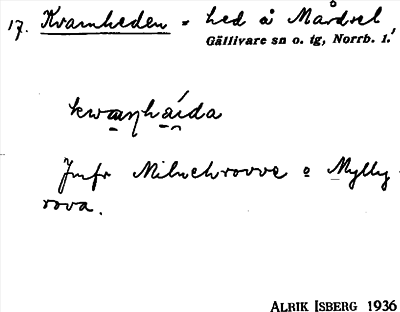 17. Kvarnheden - hed å Mårdsel
Gällivare sn o. tg, Norrb. l.
kwaɳhaída
Jmfr Milnchrovve o Mylly-
rova.
ALRIK ISBERG 1936